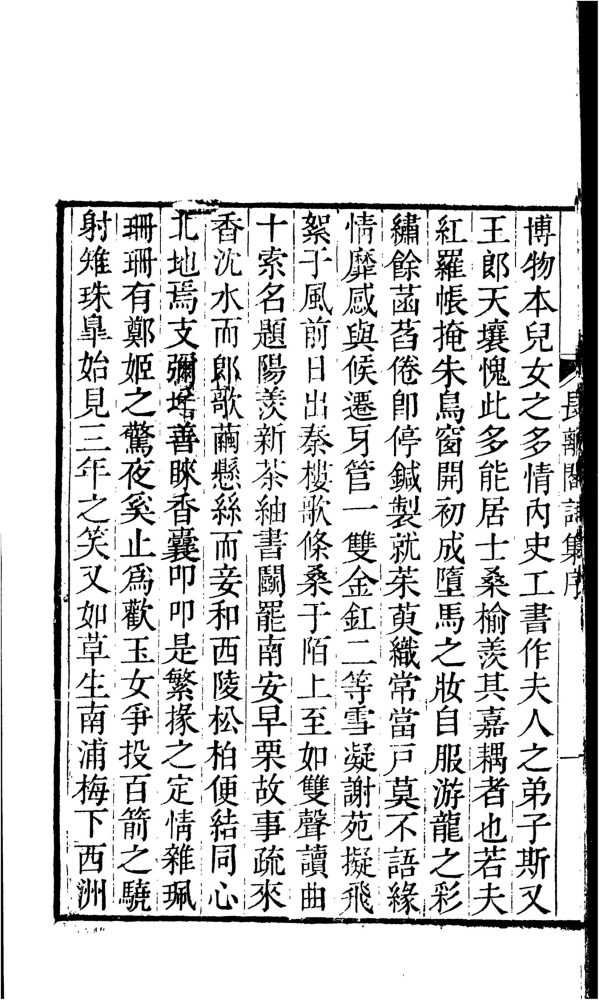 長離閣詩集序 一
博物本兒女之多情內史工書作夫人之弟子斯又
王郎天壤愧此多能居士桑榆羨其嘉耦者也若夫
紅羅帳掩朱鳥窗開初成墮馬之妝自服游龍之彩
繡餘菡萏倦卽停鍼製就茱萸織常當戸莫不語緣
情靡感與候遷牙管一雙金釭二等雪凝謝苑擬飛
絮于風前日出秦樓歌條桑于陌上至如雙聲讀曲
十索名題陽羨新茶紬書鬭罷南安早栗故事疏來
香沈水而郎歌繭懸絲而妾和西陵松柏便結同心
北地焉支彌增善睞香囊叩叩是繁掾之定情雜珮
珊珊有鄭姬之驚夜奚止爲歡玉女爭投百箭之驍
射雉珠皐始見三年之笑又如草生南浦梅下西洲